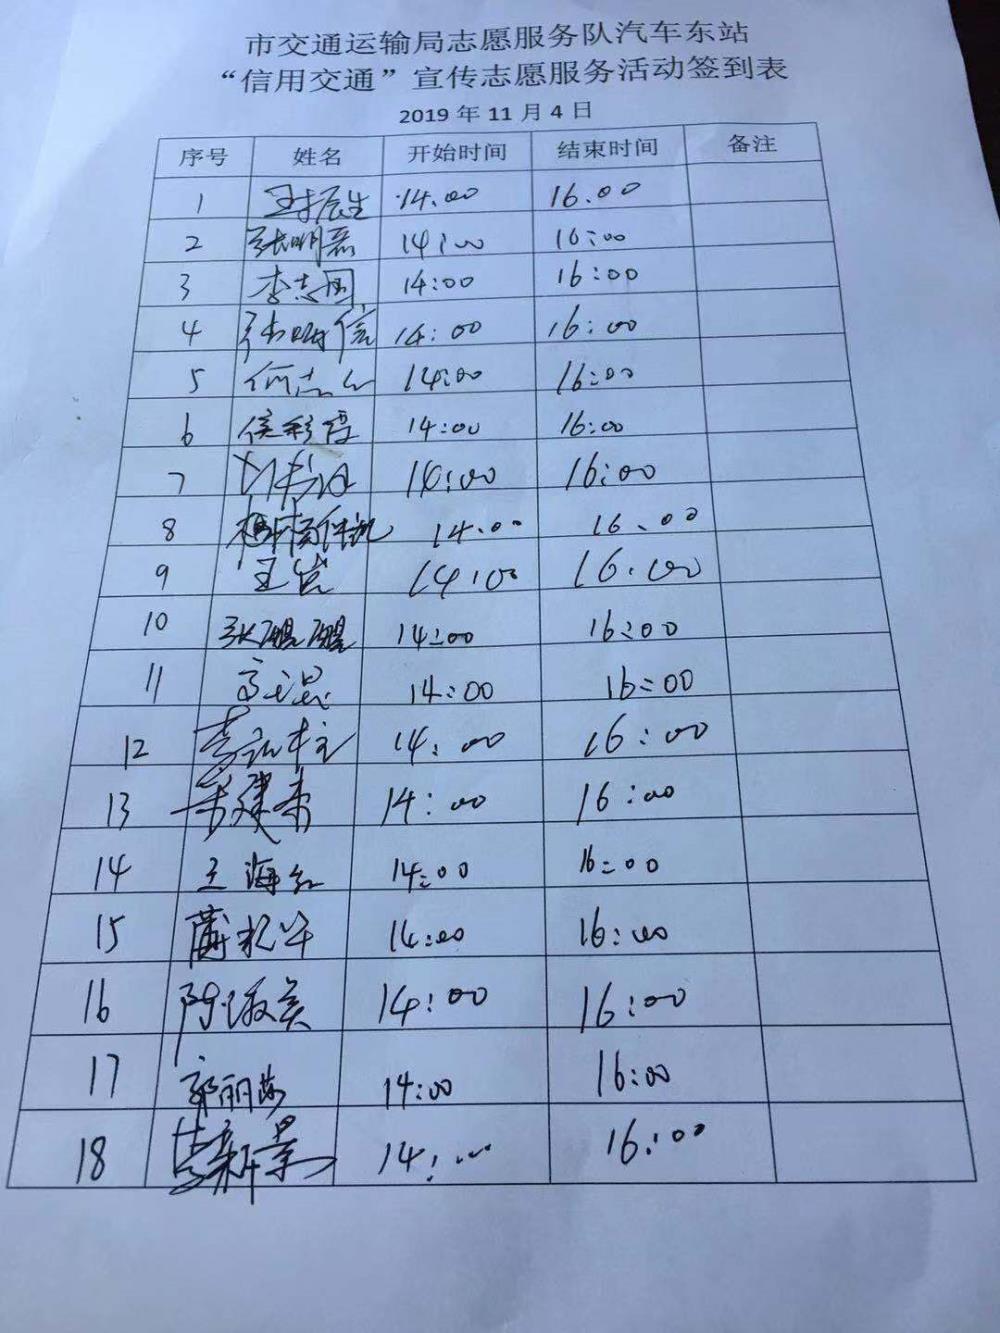 市交通运输局志愿服务队汽车东站
“信用交通”宣传志愿服务活动签到表
2019 年 11 月 4 日
序号 姓名 开始时间 结束时间 备注
1 14.00 16.00
2 张明磊 14:00 16:00
3 李志国 14:00 16:00
4 张明信 14:00 16:00
5 何志 14:00 16:00
6 侯彩霞 14:00 16:00
7 14:00 16:00
8 14.00 16.00
9 王岩 14:00 16.00
10 张鹏鹏 14:00 16:00
11 14:00 16:00
12 14:00 16:00
13 14:00 16:00
14 王海红 14:00 16:00
15 蔺松华 14:00 16:00
16 陈淑美 14:00 16:00
17 郭丽莎 14:00 16:00
18 李新景 14:00 16:00